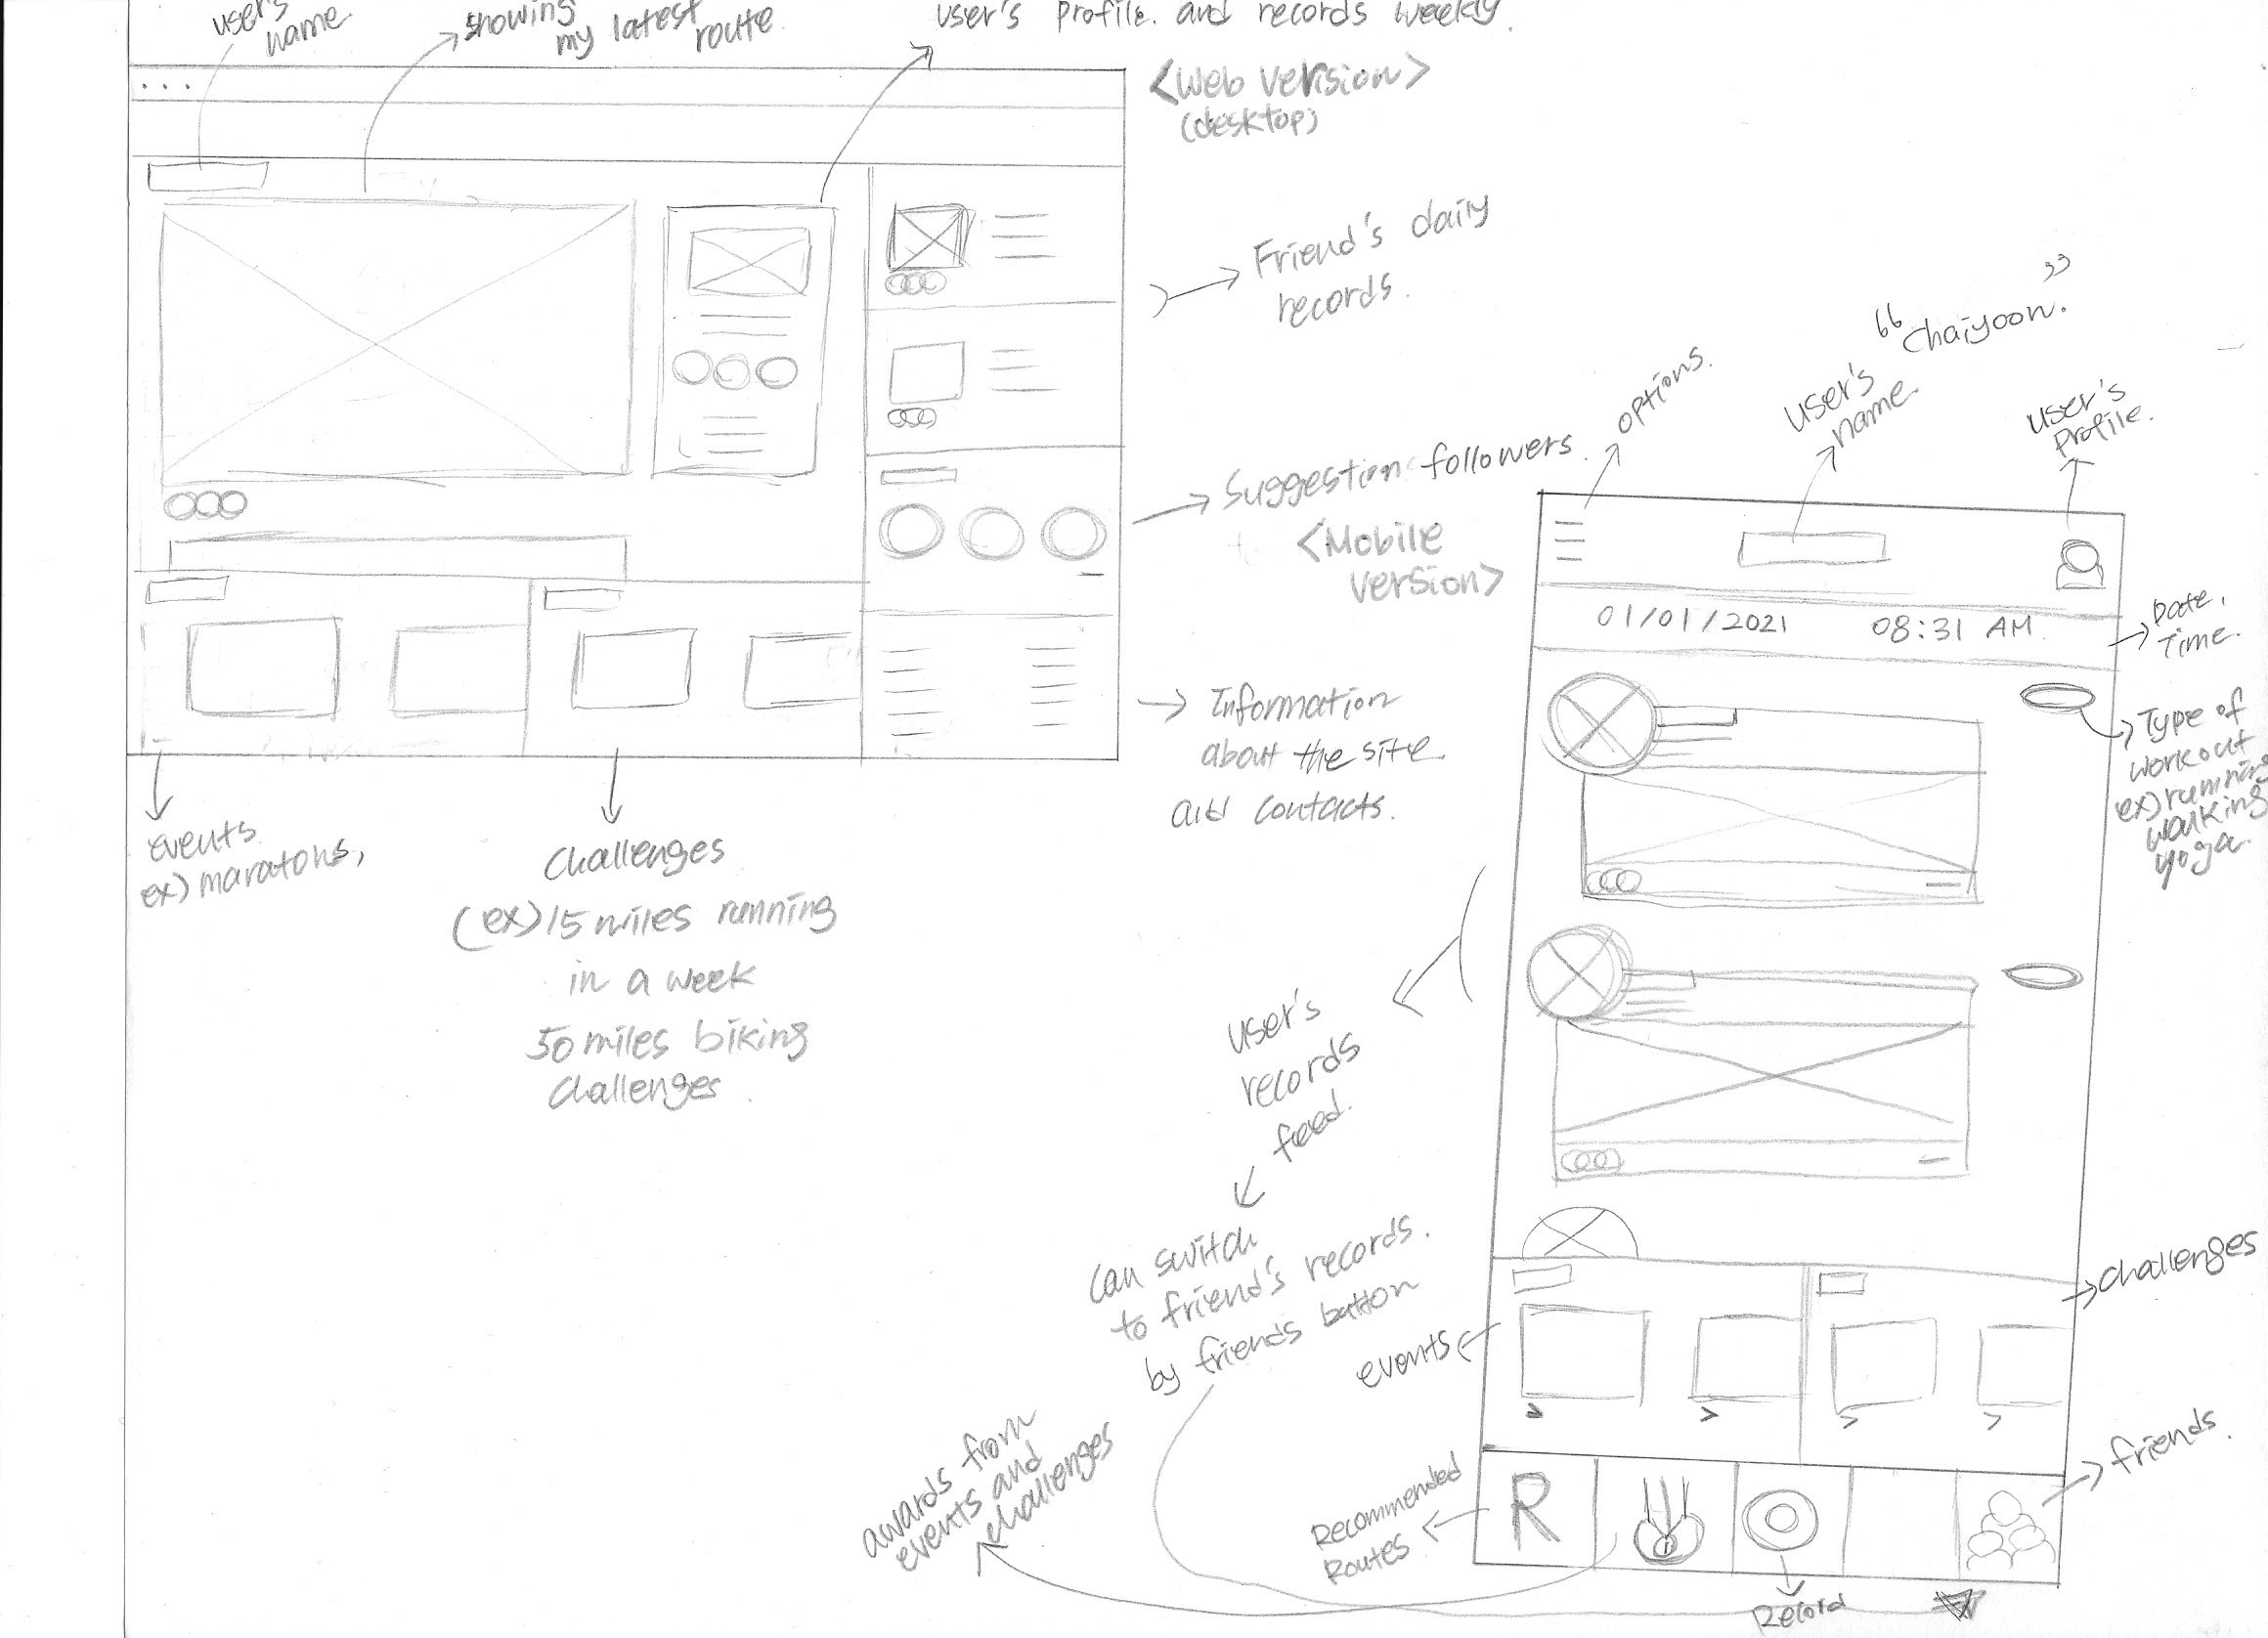 user's
name.
showing
my latest
route.
user's profile. and records weekly.
<Web version>
(desktop)
Friend's daily
records.
Suggestion followers.
Information
about the site
and contacts.
events.
ex) maratons,
Challenges
(ex) 15 miles running
in a week
50 miles biking
challenges.
<Mobile
version>
options.
user's
name.
“Chaiyoon.”
user's
profile.
01/01/2021 08:31 AM.
Date,
Time.
Type of
workout
ex) running
walking
yoga.
user's
records
feed.
Can switch
to friend's records.
by friends button
challenges
events
friends.
awards from
events and
challenges
Recommended
Routes
R
1
Record